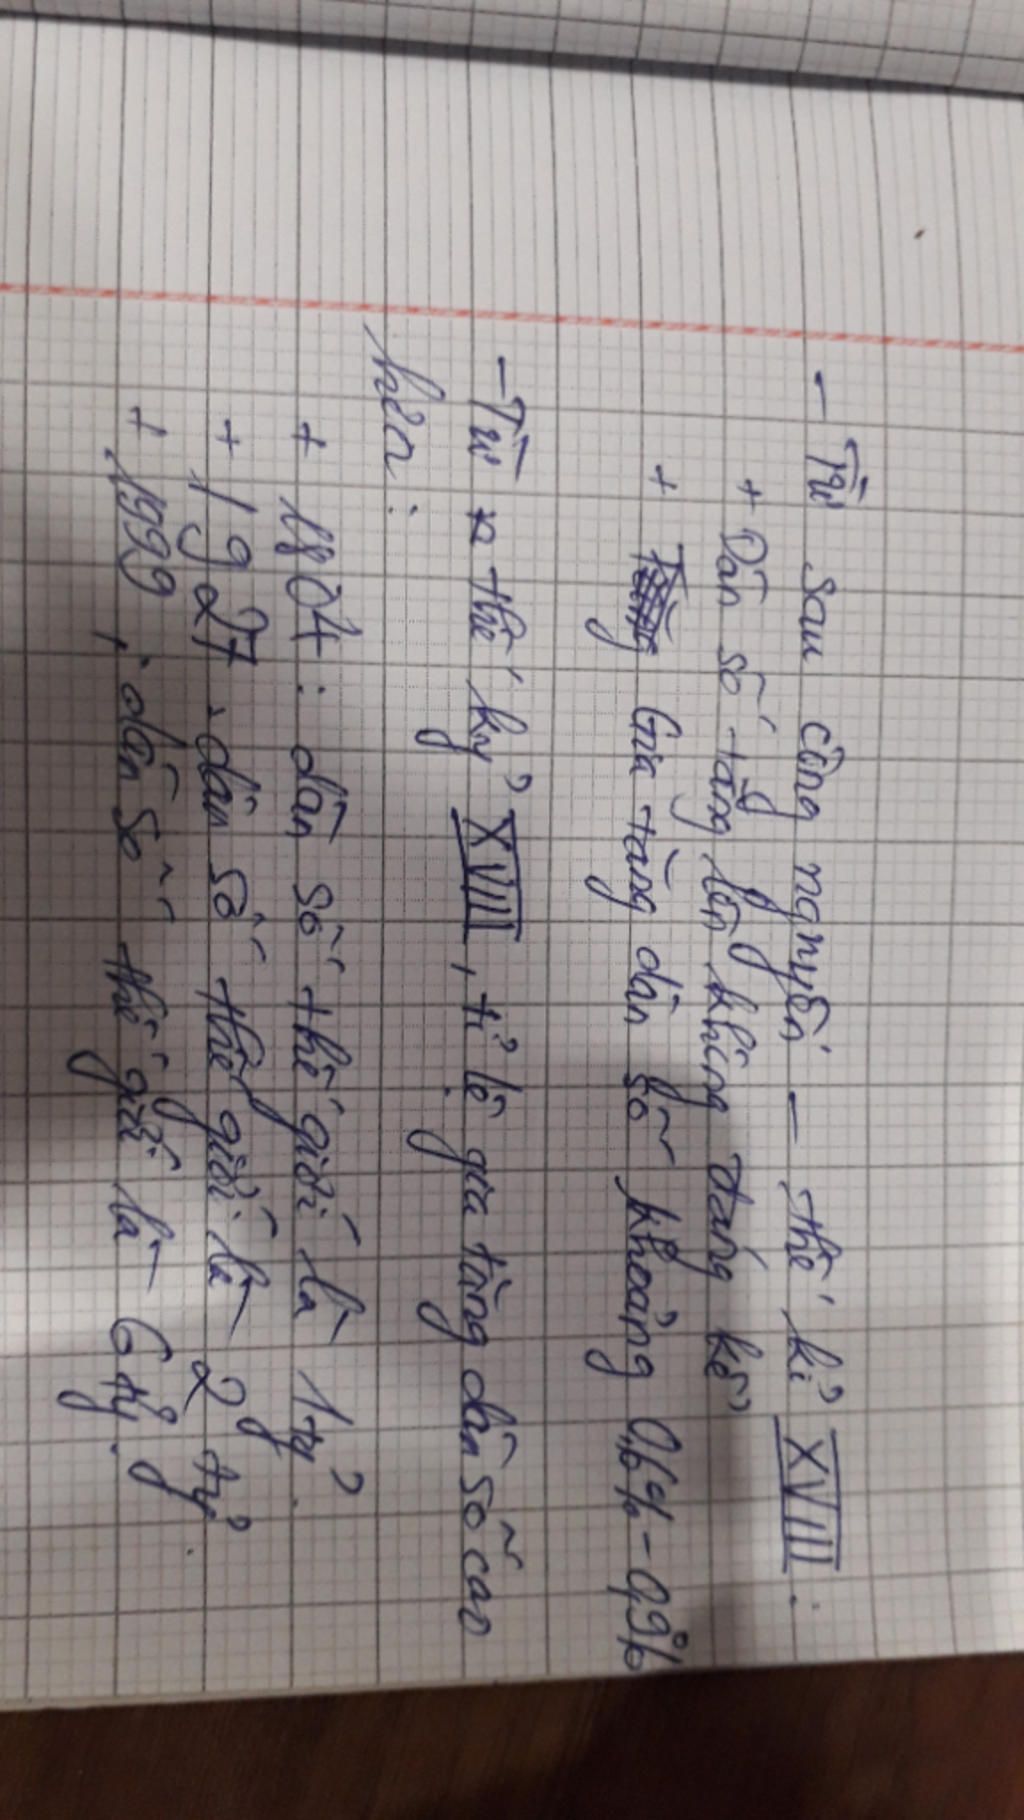 - Từ sau công nguyên - thế kỉ XVIII :
+ Dân số tăng lên không đáng kể
+ Gia tăng dân số khoảng 0,6% - 0,9%
- Từ thế kỷ XVIII, tỉ lệ gia tăng dân số cao
hơn :
+ 1804 : dân số thế giới là 1 tỷ.
+ 1927 : dân số thế giới là 2 tỷ.
+ 1999 : dân số thế giới là 6 tỷ.